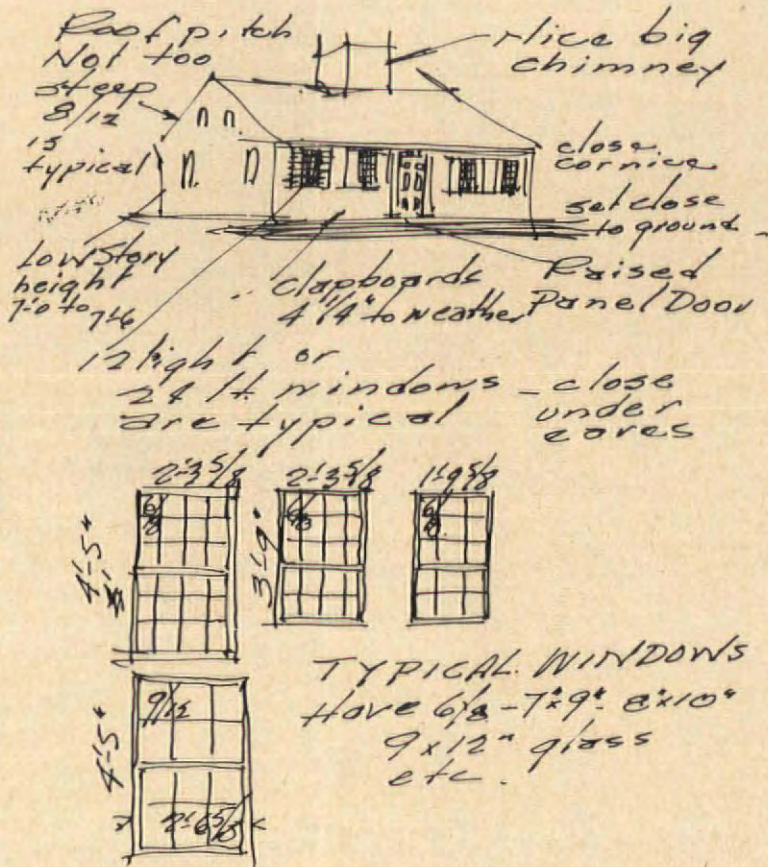 Roof pitch
Not too
steep
8/12
is
typical
Nice big
chimney
close
cornice
set close
to ground
Low Story
height
7'-0 to 7'-6
clapboards
4 1/4" to weather
Raised
Panel Door
12 light or
24 lt. windows - close
are typical under
eaves
2'-3 5/8 2'-3 5/8 1'-9 5/8
6/8 6/8 6/8
4'-5"
3'-9"
TYPICAL WINDOWS
Have 6/8 - 7"x9" - 8"x10"
9 x 12" glass
etc.
9/12
4'-5"
2'-6 5/8